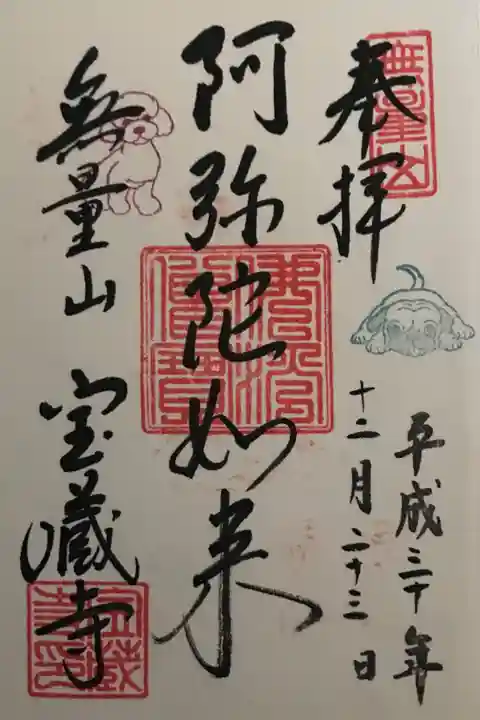 奉拝
無量山
平成三十年
十二月二十三日
阿弥陀如来
無量山
宝蔵寺